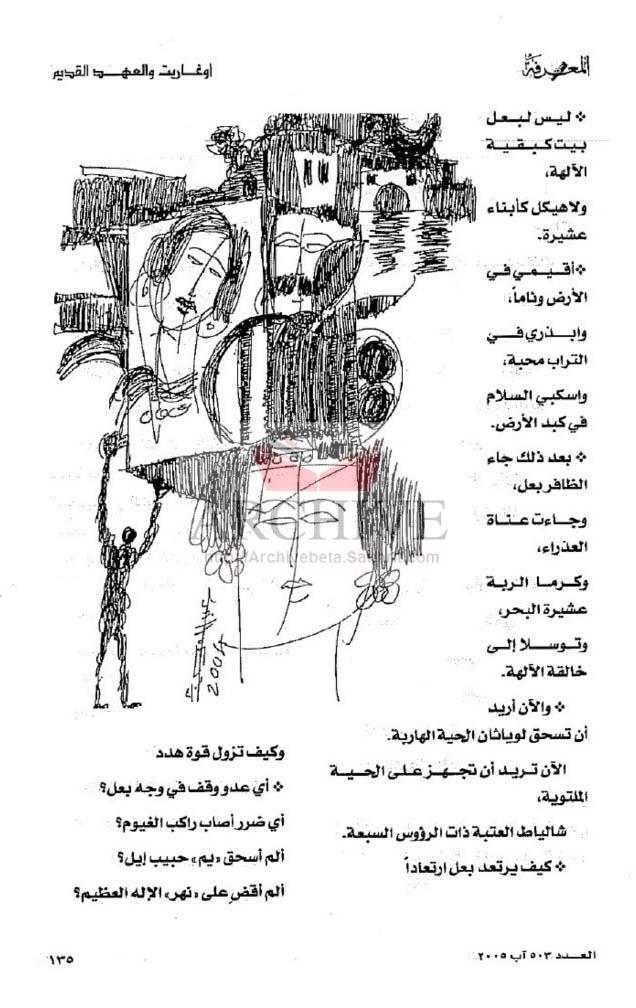 المعرفة
أوغاريت والعهد القديم
❖ ليس لبعل
بيت كبقية
الآلهة،
ولاهيكل كأبناء
عشيرة.
❖ أقيمي في
الأرض وئاماً،
وابذري في
التراب محبة،
واسكبي السلام
في كبد الأرض.
❖ بعد ذلك جاء
الظافر بعل،
وجاءت عناة
العذراء،
وكرما الربة
عشيرة البحر،
وتوسلا إلى
خالقة الآلهة.
❖ والآن أريد
أن تسحق لوياثان الحية الهاربة.
الآن تريد أن تجهز على الحية
الملتوية،
شالياط العتية ذات الرؤوس السبعة.
❖ كيف يرتعد بعل ارتعاداً
وكيف تزول قوة هدد
❖ أي عدو وقف في وجه بعل؟
أي ضرر أصاب راكب الغيوم؟
ألم أسحق «يم» حبيب إيل؟
ألم أقضِ على «نهر» الإله العظيم؟
2004
ARCHIVE
http://Archivebeta.Sakhrit.com
العدد ٥٠٣ آب ٢٠٠٥
١٣٥